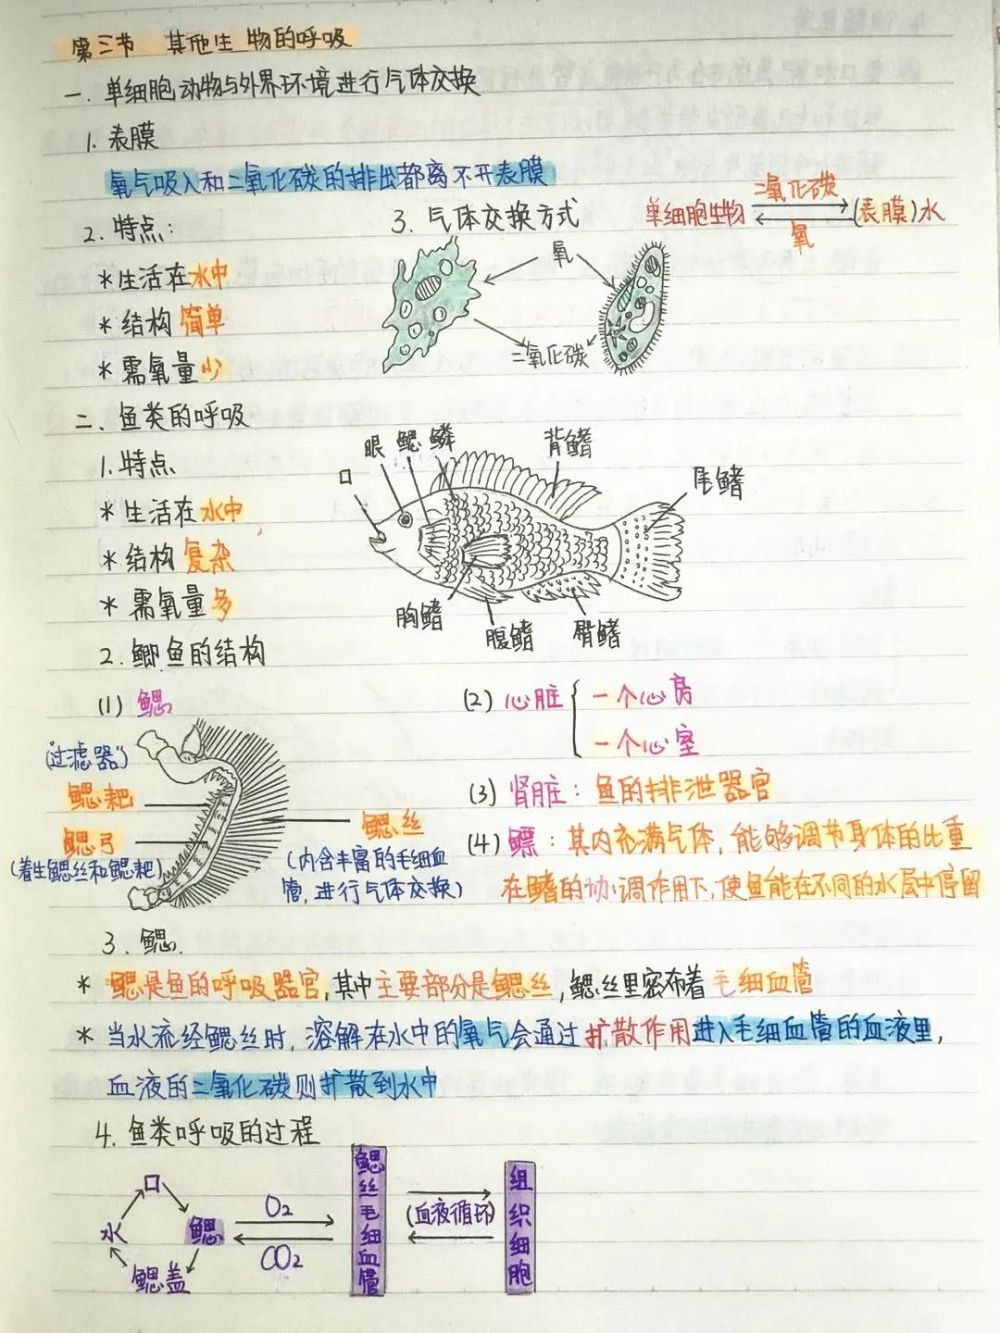 第三节 其他生物的呼吸
一. 单细胞动物与外界环境进行气体交换
1. 表膜
氧气吸入和二氧化碳的排出都离不开表膜
2. 特点:
3. 气体交换方式
单细胞生物 二氧化碳 氧 (表膜)水
*生活在水中
*结构简单
*需氧量少
氧
二氧化碳
二、鱼类的呼吸
1. 特点
*生活在水中
*结构复杂
*需氧量多
口 眼 鳃 鳞 背鳍 尾鳍
胸鳍 腹鳍 臀鳍
2. 鲫鱼的结构
(1) 鳃
(过滤器)
鳃耙
鳃弓
(着生鳃丝和鳃耙)
鳃丝
(内含丰富的毛细血
管,进行气体交换)
(2) 心脏 { 一个心房
一个心室
(3) 肾脏: 鱼的排泄器官
(4) 鳔: 其内充满气体, 能够调节身体的比重
在鳍的协调作用下,使鱼能在不同的水层中停留
3. 鳃.
* 鳃是鱼的呼吸器官,其中主要部分是鳃丝,鳃丝里密布着毛细血管
* 当水流经鳃丝时,溶解在水中的氧气会通过扩散作用进入毛细血管的血液里,
血液的二氧化碳则扩散到水中
4. 鱼类呼吸的过程
口
水
鳃
鳃盖
O2
CO2
鳃丝毛细血管
(血液循环)
组织细胞